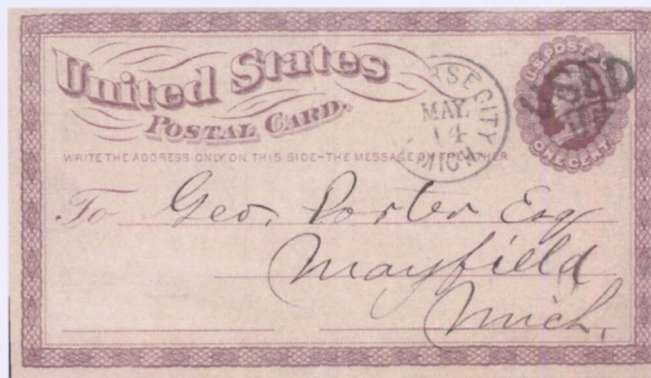 United States
POSTAL CARD.
WRITE THE ADDRESS ONLY ON THIS SIDE-THE MESSAGE ON THE OTHER
RSE CITY
MAY
14
MICH
U.S. POSTAGE
ONE CENT
USED
To Geo. Porter Esq
Mayfield
Mich.